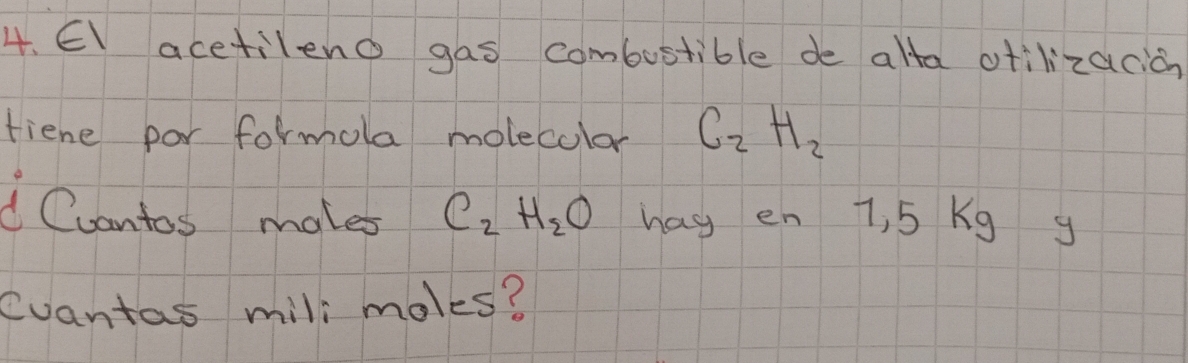 4. El acetileno gas combustible de alta utilización
tiene por formula molecular C₂ H₂
¿Cuantas moles C₂ H₂O hay en 1,5 Kg y
cuantas mili moles?